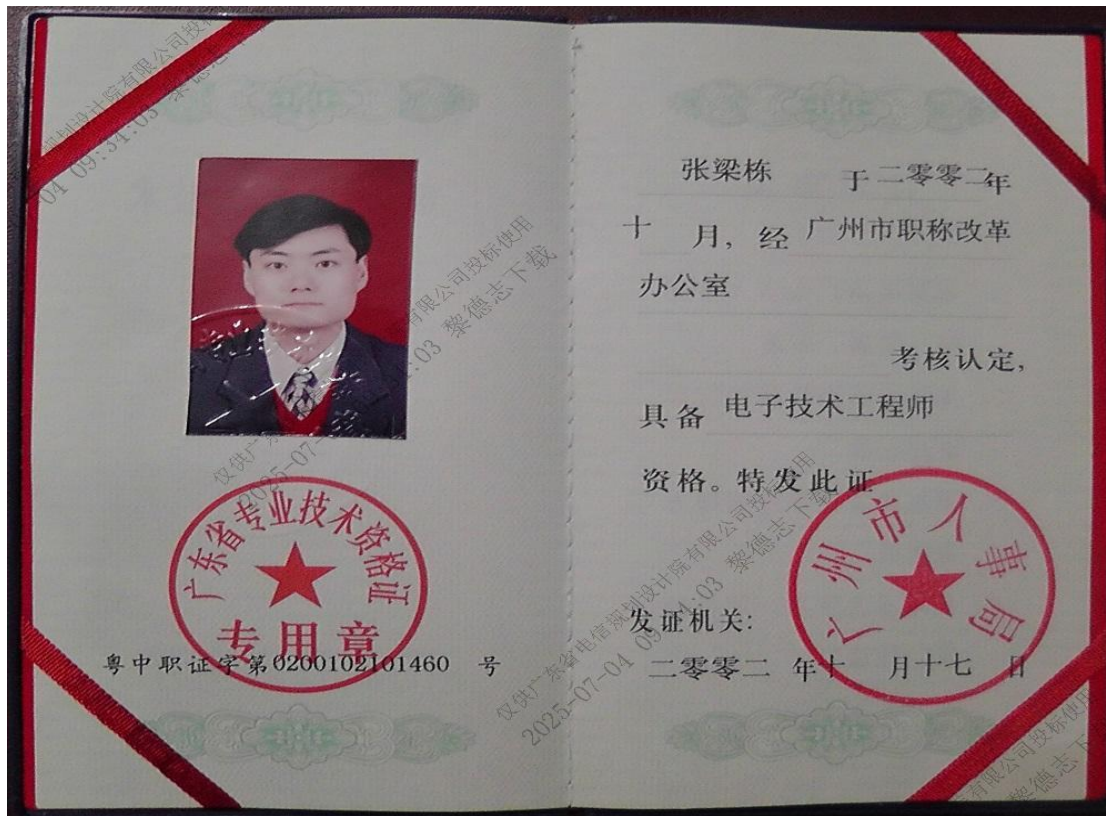 广东省专业技术资格证
专用章
粤中职证字第0200102101460 号
张梁栋 于二零零二年
十 月，经 广州市职称改革
办公室
考核认定，
具备 电子技术工程师
资格。特发此证
广州市人事局
发证机关:
二零零二 年十 月十七 日
仅供广东省电信规划设计院有限公司投标使用
2025-07-04 09:34:03 黎德志下载